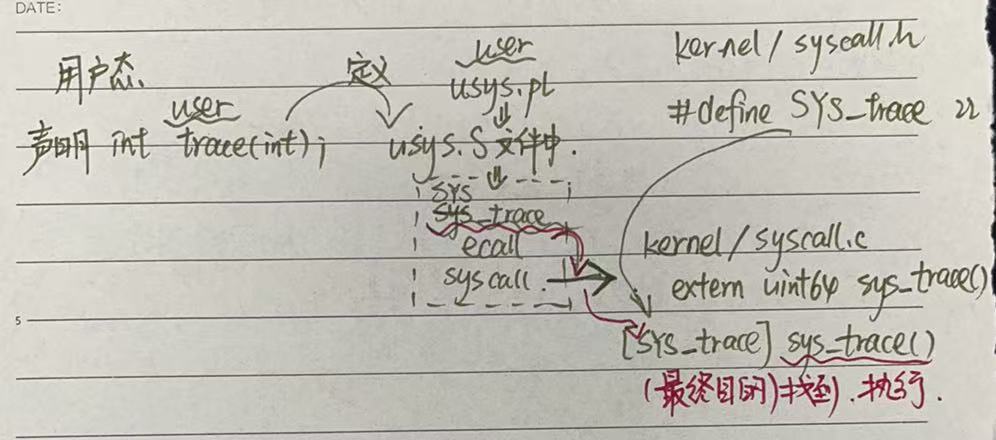 DATE:
用户态
user
声明 int trace(int);
定义
user
usys.pl
usys.S 文件中.
SYS
sys_trace
ecall
syscall
kernel/syscall.h
#define SYS_trace 22
kernel/syscall.c
extern uint64 sys_trace()
[SYS_trace] sys_trace()
(最终目的)找到.执行.
5